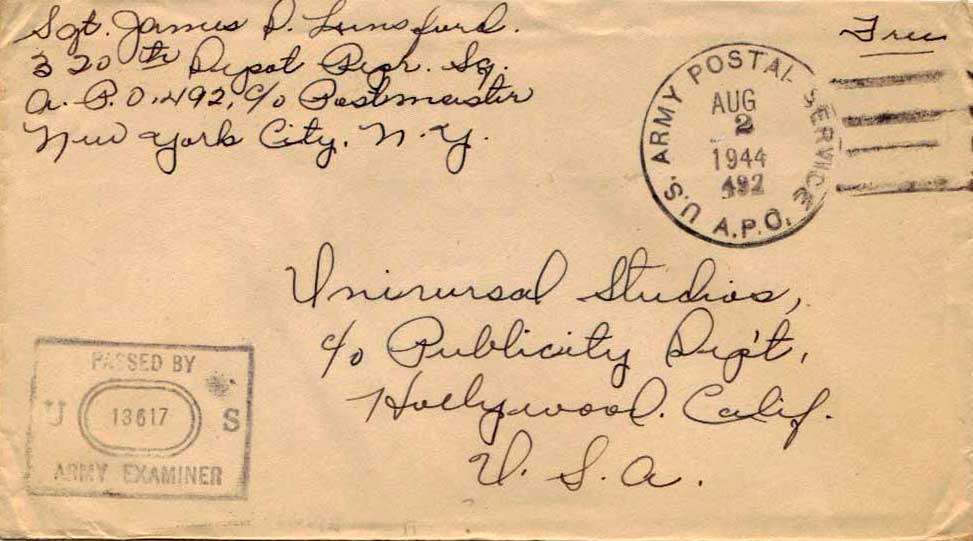 Sgt. James D. Lunsford.
320th Depot Repr. Sq.
A.P.O. 492, c/o Postmaster
New York City, N.Y.
Free
U.S. ARMY POSTAL SERVICE
AUG
2
1944
492
A.P.O.
Universal Studios,
c/o Publicity Dep't,
Hollywood. Calif.
U. S. A.
PASSED BY
U 13617 S
ARMY EXAMINER